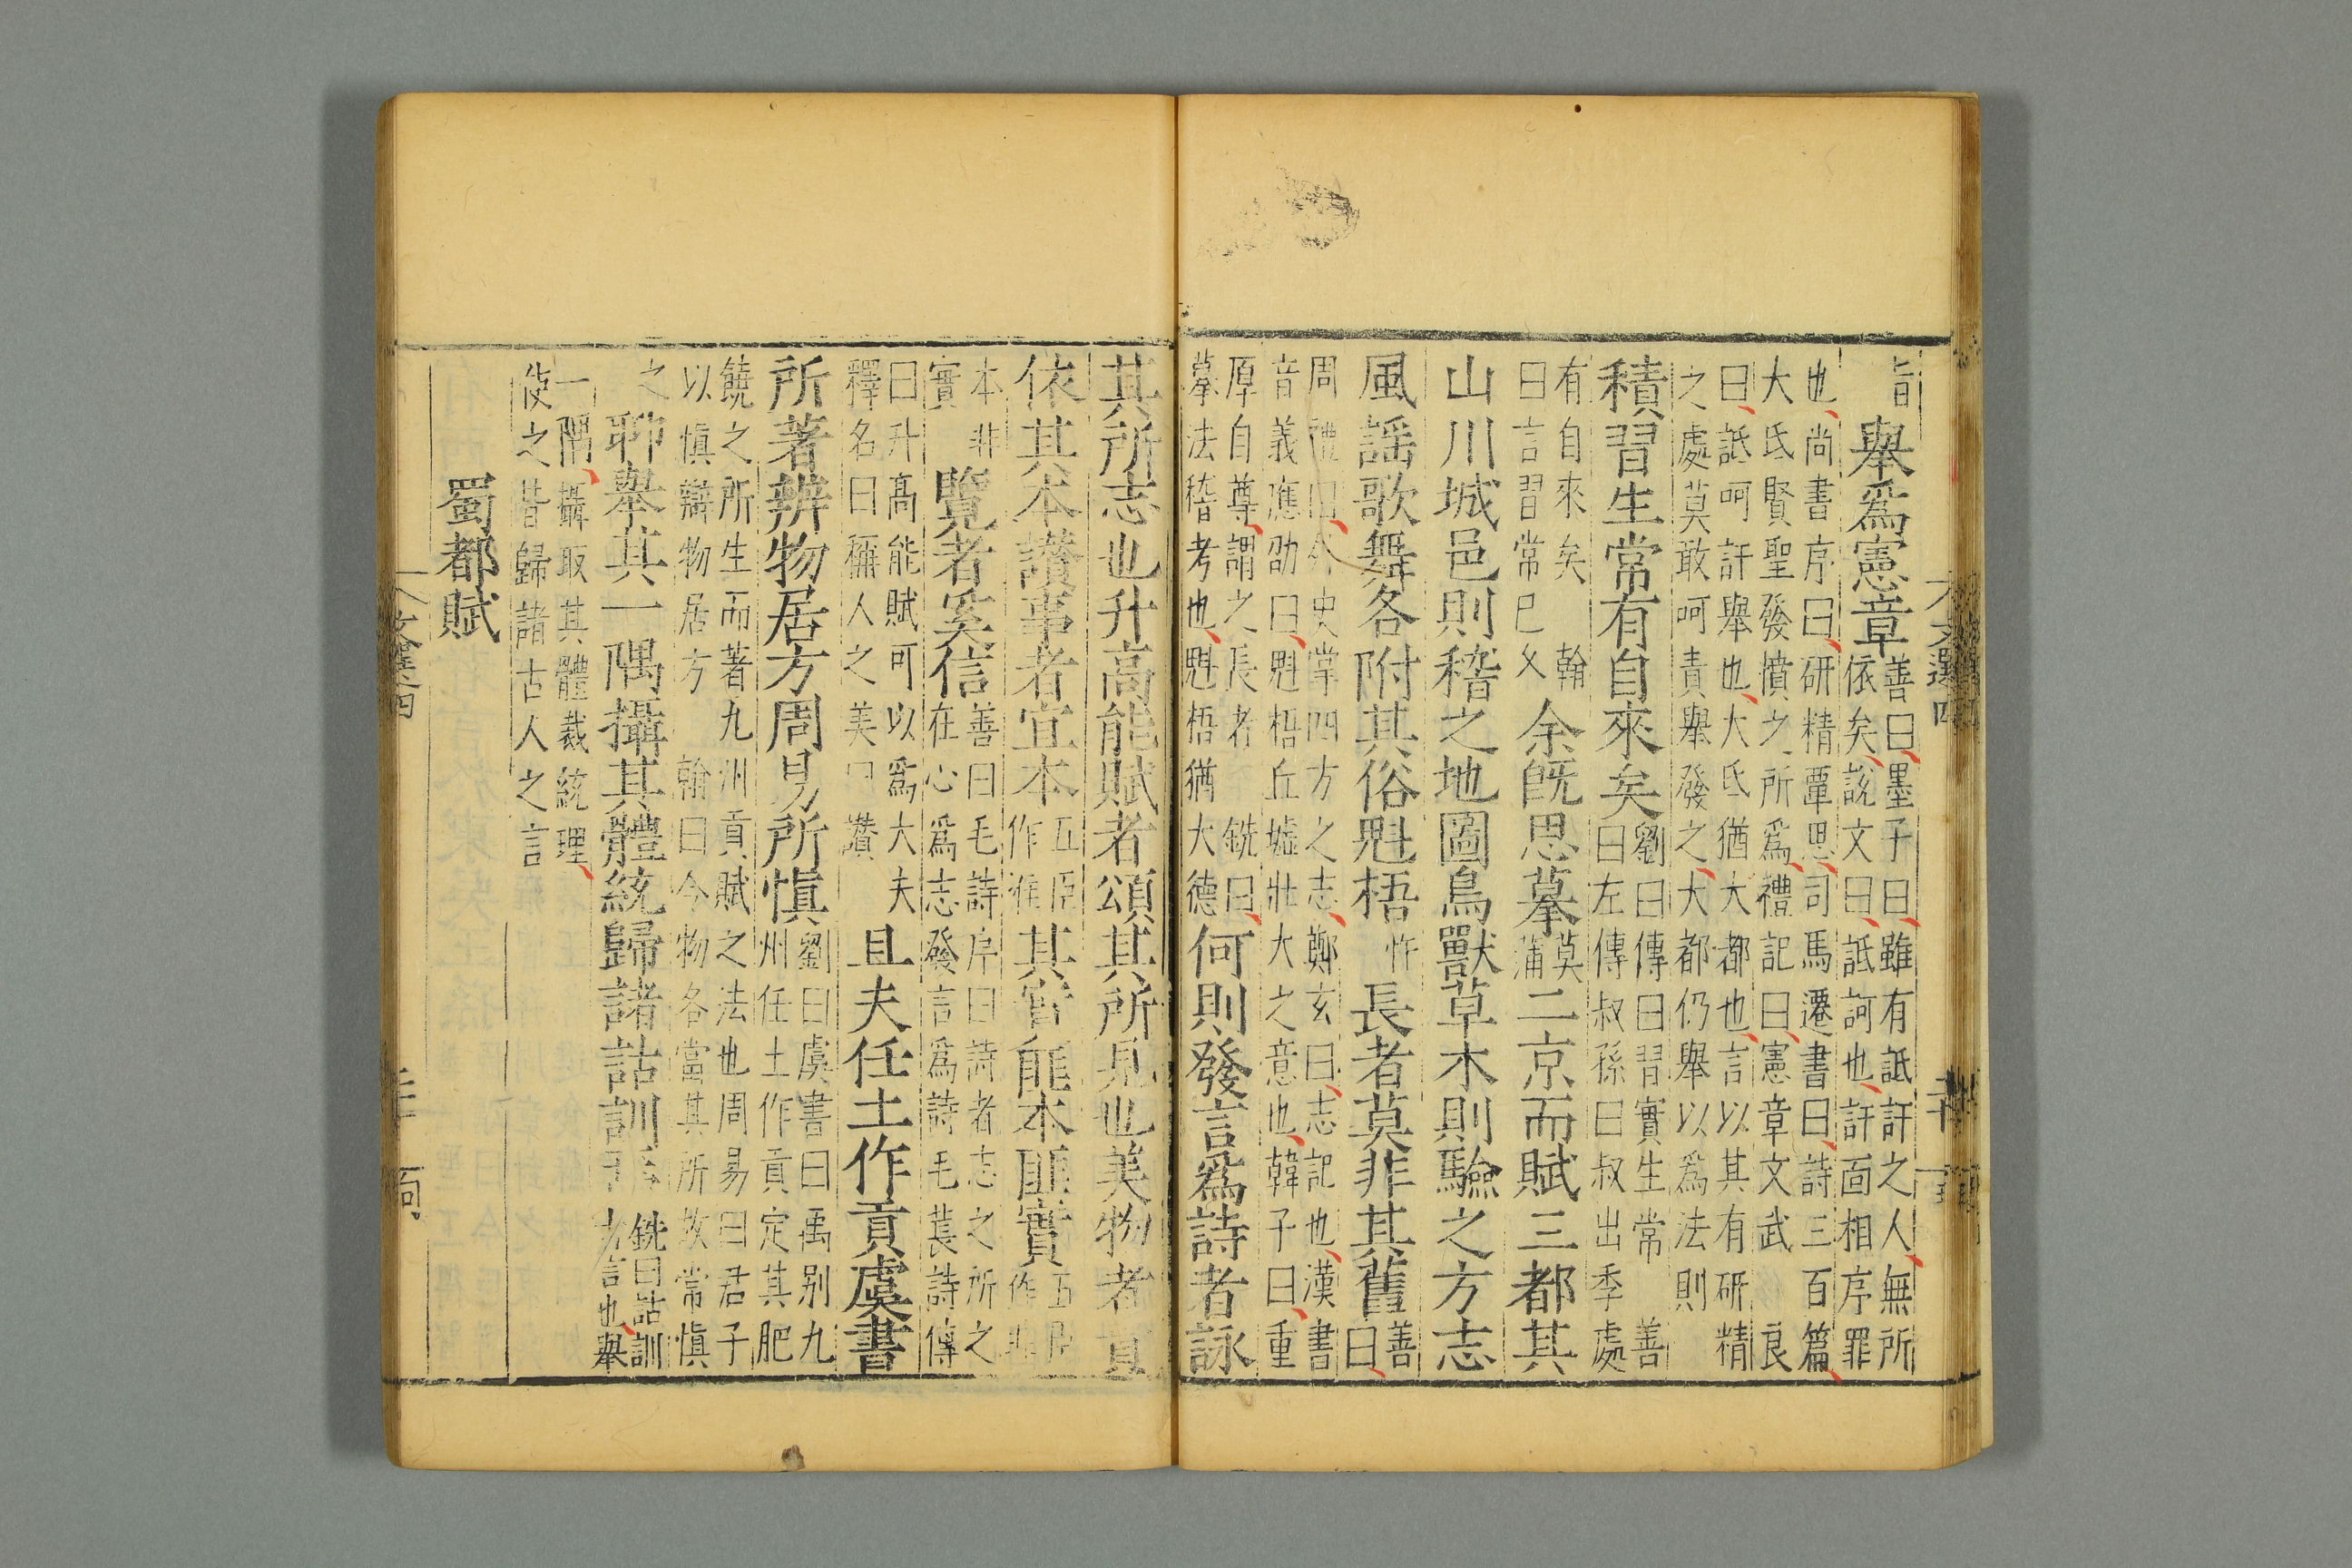 旨 舉爲憲章 善曰墨子曰雖有詆訐之人無所
依矣說文曰詆訶也訐面相序罪
也尚書序曰研精覃思司馬遷書曰詩三百篇
大氐賢聖發憤之所爲禮記曰憲章文武 良
曰詆呵訐舉也大氐猶大都也言以其有研精
之處莫敢呵責舉發之大都仍舉以爲法則
積習生常有自來矣 劉曰傳曰習實生常 善
曰左傳叔孫曰叔出季處
有自來矣 翰
曰言習常已久 余旣思摹 莫
蒲 二京而賦三都其
山川城邑則稽之地圖鳥獸草木則驗之方志
風謠歌舞各附其俗魁梧 忤 長者莫非其舊 善
曰
周禮曰外史掌四方之志鄭玄曰志記也漢書
音義應劭曰魁梧丘墟壯大之意也韓子曰重
厚自尊謂之長者 銑曰
摹法稽考也魁梧猶大德 何則發言爲詩者詠
其所志也升高能賦者頌其所見也美物者貴
依其本讚事者宜本 五臣
作准 其實匪本匪實 五臣
作非
本非
實 覽者奚信 善曰毛詩序曰詩者志之所之
在心爲志發言爲詩毛萇詩傳
曰升高能賦可以爲大夫
釋名曰稱人之美曰讚 且夫任土作貢虞書
所著辨物居方周易所愼 劉曰虞書曰禹别九
州任土作貢定其肥
饒之所生而著九州貢賦之法也周易曰君子
以愼辯物居方 翰曰今物各當其所故常愼
之 聊舉其一隅攝其體統歸諸詁訓焉 銑曰詁訓
古言也舉
一隅攝取其體裁統理
使之昔歸諸古人之言
蜀都賦